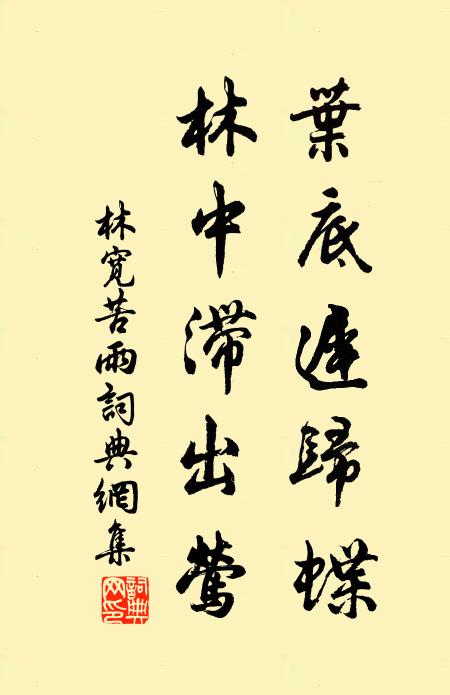 葉底遲歸蝶
林中滯出鶯
林寬苦雨詞典網集
詞典网印